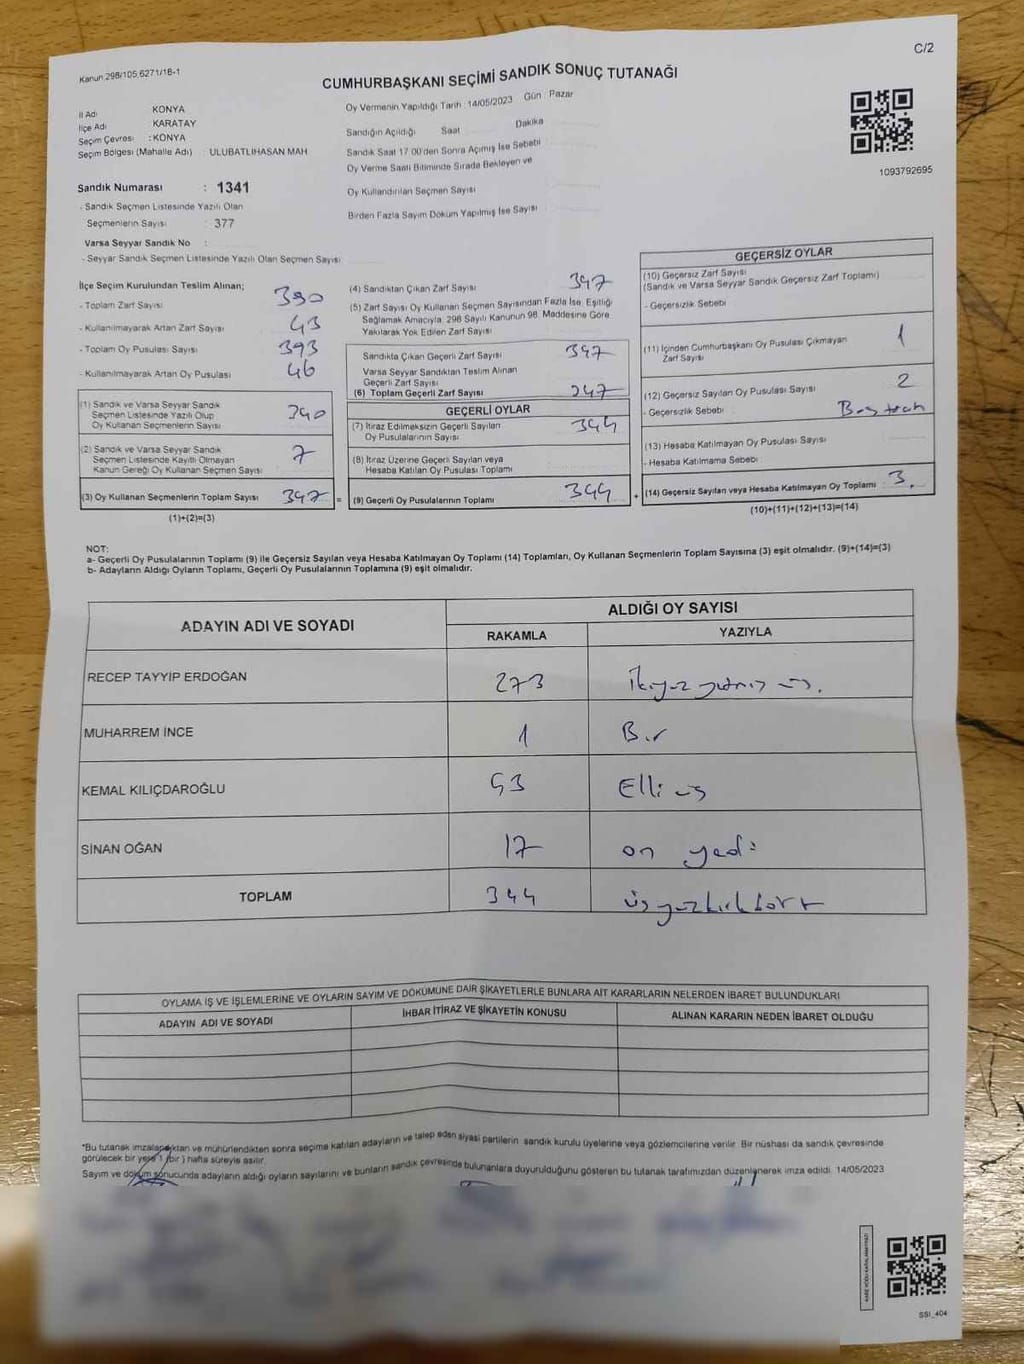 C/2
Kanun:298/105,6271/18-1
CUMHURBAŞKANI SEÇİMİ SANDIK SONUÇ TUTANAĞI
İl Adı KONYA
İlçe Adı KARATAY
Seçim Çevresi : KONYA
Seçim Bölgesi (Mahalle Adı) : ULUBATLIHASAN MAH
Sandık Numarası : 1341
- Sandık Seçmen Listesinde Yazılı Olan
Seçmenlerin Sayısı : 377
Varsa Seyyar Sandık No :
- Seyyar Sandık Seçmen Listesinde Yazılı Olan Seçmen Sayısı
Oy Vermenin Yapıldığı Tarih : 14/05/2023 Gün Pazar
Sandığın Açıldığı Saat Dakika
Sandık Saat 17.00'den Sonra Açılmış İse Sebebi
Oy Verme Saati Bitiminde Sırada Bekleyen ve
Oy Kullandırılan Seçmen Sayısı
Birden Fazla Sayım Döküm Yapılmış İse Sayısı
1093792695
İlçe Seçim Kurulundan Teslim Alınan;
- Toplam Zarf Sayısı 390
- Kullanılmayarak Artan Zarf Sayısı 43
- Toplam Oy Pusulası Sayısı 393
- Kullanılmayarak Artan Oy Pusulası 46
(1) Sandık ve Varsa Seyyar Sandık
Seçmen Listesinde Yazılı Olup
Oy Kullanan Seçmenlerin Sayısı 340
(2) Sandık ve Varsa Seyyar Sandık
Seçmen Listesinde Kayıtlı Olmayan
Kanun Gereği Oy Kullanan Seçmen Sayısı 7
(3) Oy Kullanan Seçmenlerin Toplam Sayısı 347 =
(1)+(2)=(3)
(4) Sandıktan Çıkan Zarf Sayısı 347
(5) Zarf Sayısı Oy Kullanan Seçmen Sayısından Fazla İse, Eşitliği
Sağlamak Amacıyla, 298 Sayılı Kanunun 98. Maddesine Göre
Yakılarak Yok Edilen Zarf Sayısı
Sandıkta Çıkan Geçerli Zarf Sayısı 347
Varsa Seyyar Sandıktan Teslim Alınan
Geçerli Zarf Sayısı
(6) Toplam Geçerli Zarf Sayısı 347
GEÇERLİ OYLAR
(7) İtiraz Edilmeksizin Geçerli Sayılan
Oy Pusulalarının Sayısı 344
(8) İtiraz Üzerine Geçerli Sayılan veya
Hesaba Katılan Oy Pusulası Toplamı
(9) Geçerli Oy Pusulalarının Toplamı 344 +
GEÇERSİZ OYLAR
(10) Geçersiz Zarf Sayısı
(Sandık ve Varsa Seyyar Sandık Geçersiz Zarf Toplamı)
- Geçersizlik Sebebi
(11) İçinden Cumhurbaşkanı Oy Pusulası Çıkmayan
Zarf Sayısı 1
(12) Geçersiz Sayılan Oy Pusulası Sayısı 2
- Geçersizlik Sebebi :
(13) Hesaba Katılmayan Oy Pusulası Sayısı
- Hesaba Katılmama Sebebi
(14) Geçersiz Sayılan veya Hesaba Katılmayan Oy Toplamı 3.
(10)+(11)+(12)+(13)=(14)
NOT:
a- Geçerli Oy Pusulalarının Toplamı (9) ile Geçersiz Sayılan veya Hesaba Katılmayan Oy Toplamı (14) Toplamları, Oy Kullanan Seçmenlerin Toplam Sayısına (3) eşit olmalıdır. (9)+(14)=(3)
b- Adayların Aldığı Oyların Toplamı, Geçerli Oy Pusulalarının Toplamına (9) eşit olmalıdır.
ADAYIN ADI VE SOYADI
ALDIĞI OY SAYISI
RAKAMLA YAZIYLA
RECEP TAYYİP ERDOĞAN 273 İkiyüz yetmiş üç.
MUHARREM İNCE 1 Bir
KEMAL KILIÇDAROĞLU 53 Elli üç
SİNAN OĞAN 17 on yedi
TOPLAM 344 üçyüzkırkdört
OYLAMA İŞ VE İŞLEMLERİNE VE OYLARIN SAYIM VE DÖKÜMÜNE DAİR ŞİKAYETLERLE BUNLARA AİT KARARLARIN NELERDEN İBARET BULUNDUKLARI
ADAYIN ADI VE SOYADI İHBAR İTİRAZ VE ŞİKAYETİN KONUSU ALINAN KARARIN NEDEN İBARET OLDUĞU
*Bu tutanak imzalandıktan ve mühürlendikten sonra seçime katılan adayların ve talep eden siyasi partilerin sandık kurulu üyelerine veya gözlemcilerine verilir. Bir nüshası da sandık çevresinde
görülecek bir yere 1 (bir) hafta süreyle asılır.
Sayım ve döküm sonucunda adayların aldığı oyların sayılarını ve bunların sandık çevresinde bulunanlara duyurulduğunu gösteren bu tutanak tarafımızdan düzenlenerek imza edildi. 14/05/2023
SSI_404